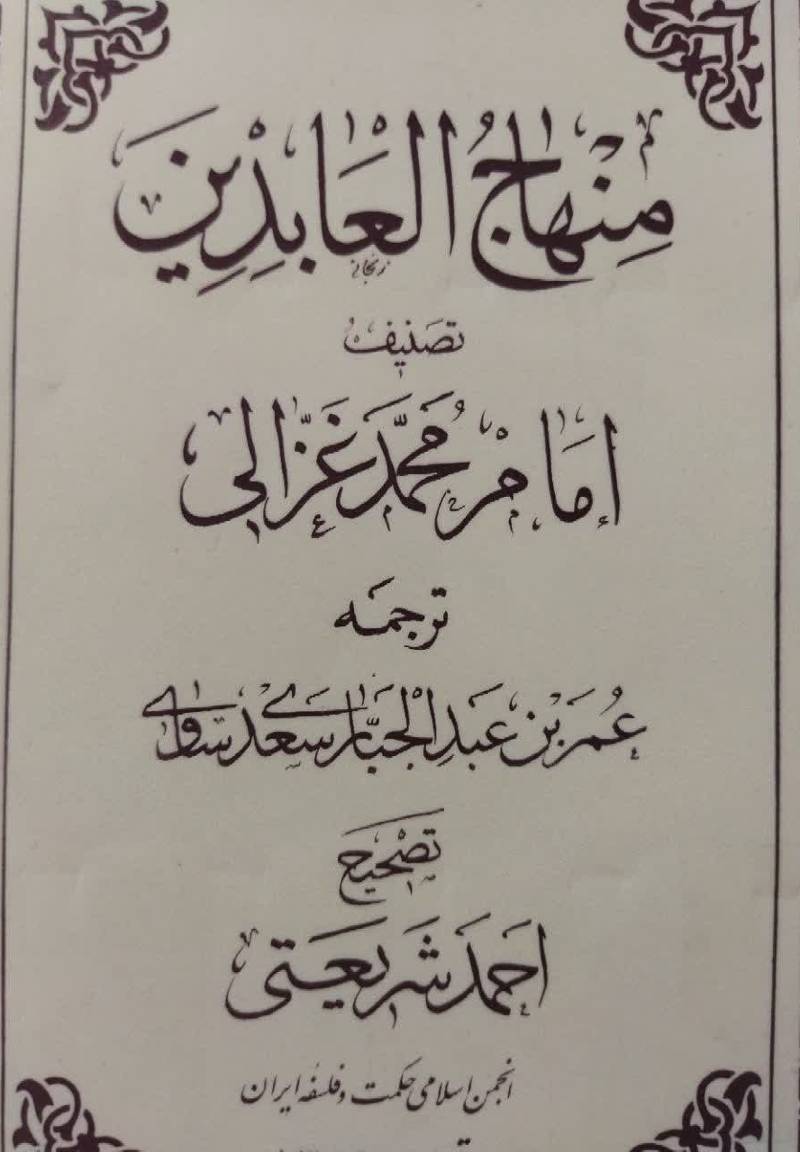 مِنْهاجُ الْعَابِدِينَ
زنجانی
تصنیف
اِمَامْ مُحَمَّدْ غَزَّالی
ترجمه
عُمَر بْن عَبْدِالْجَبّارِی سَعْدِ سٰاوی
تصحیح
احمد شریعتی
انجمن اسلامی حکمت و فلسفه ایران